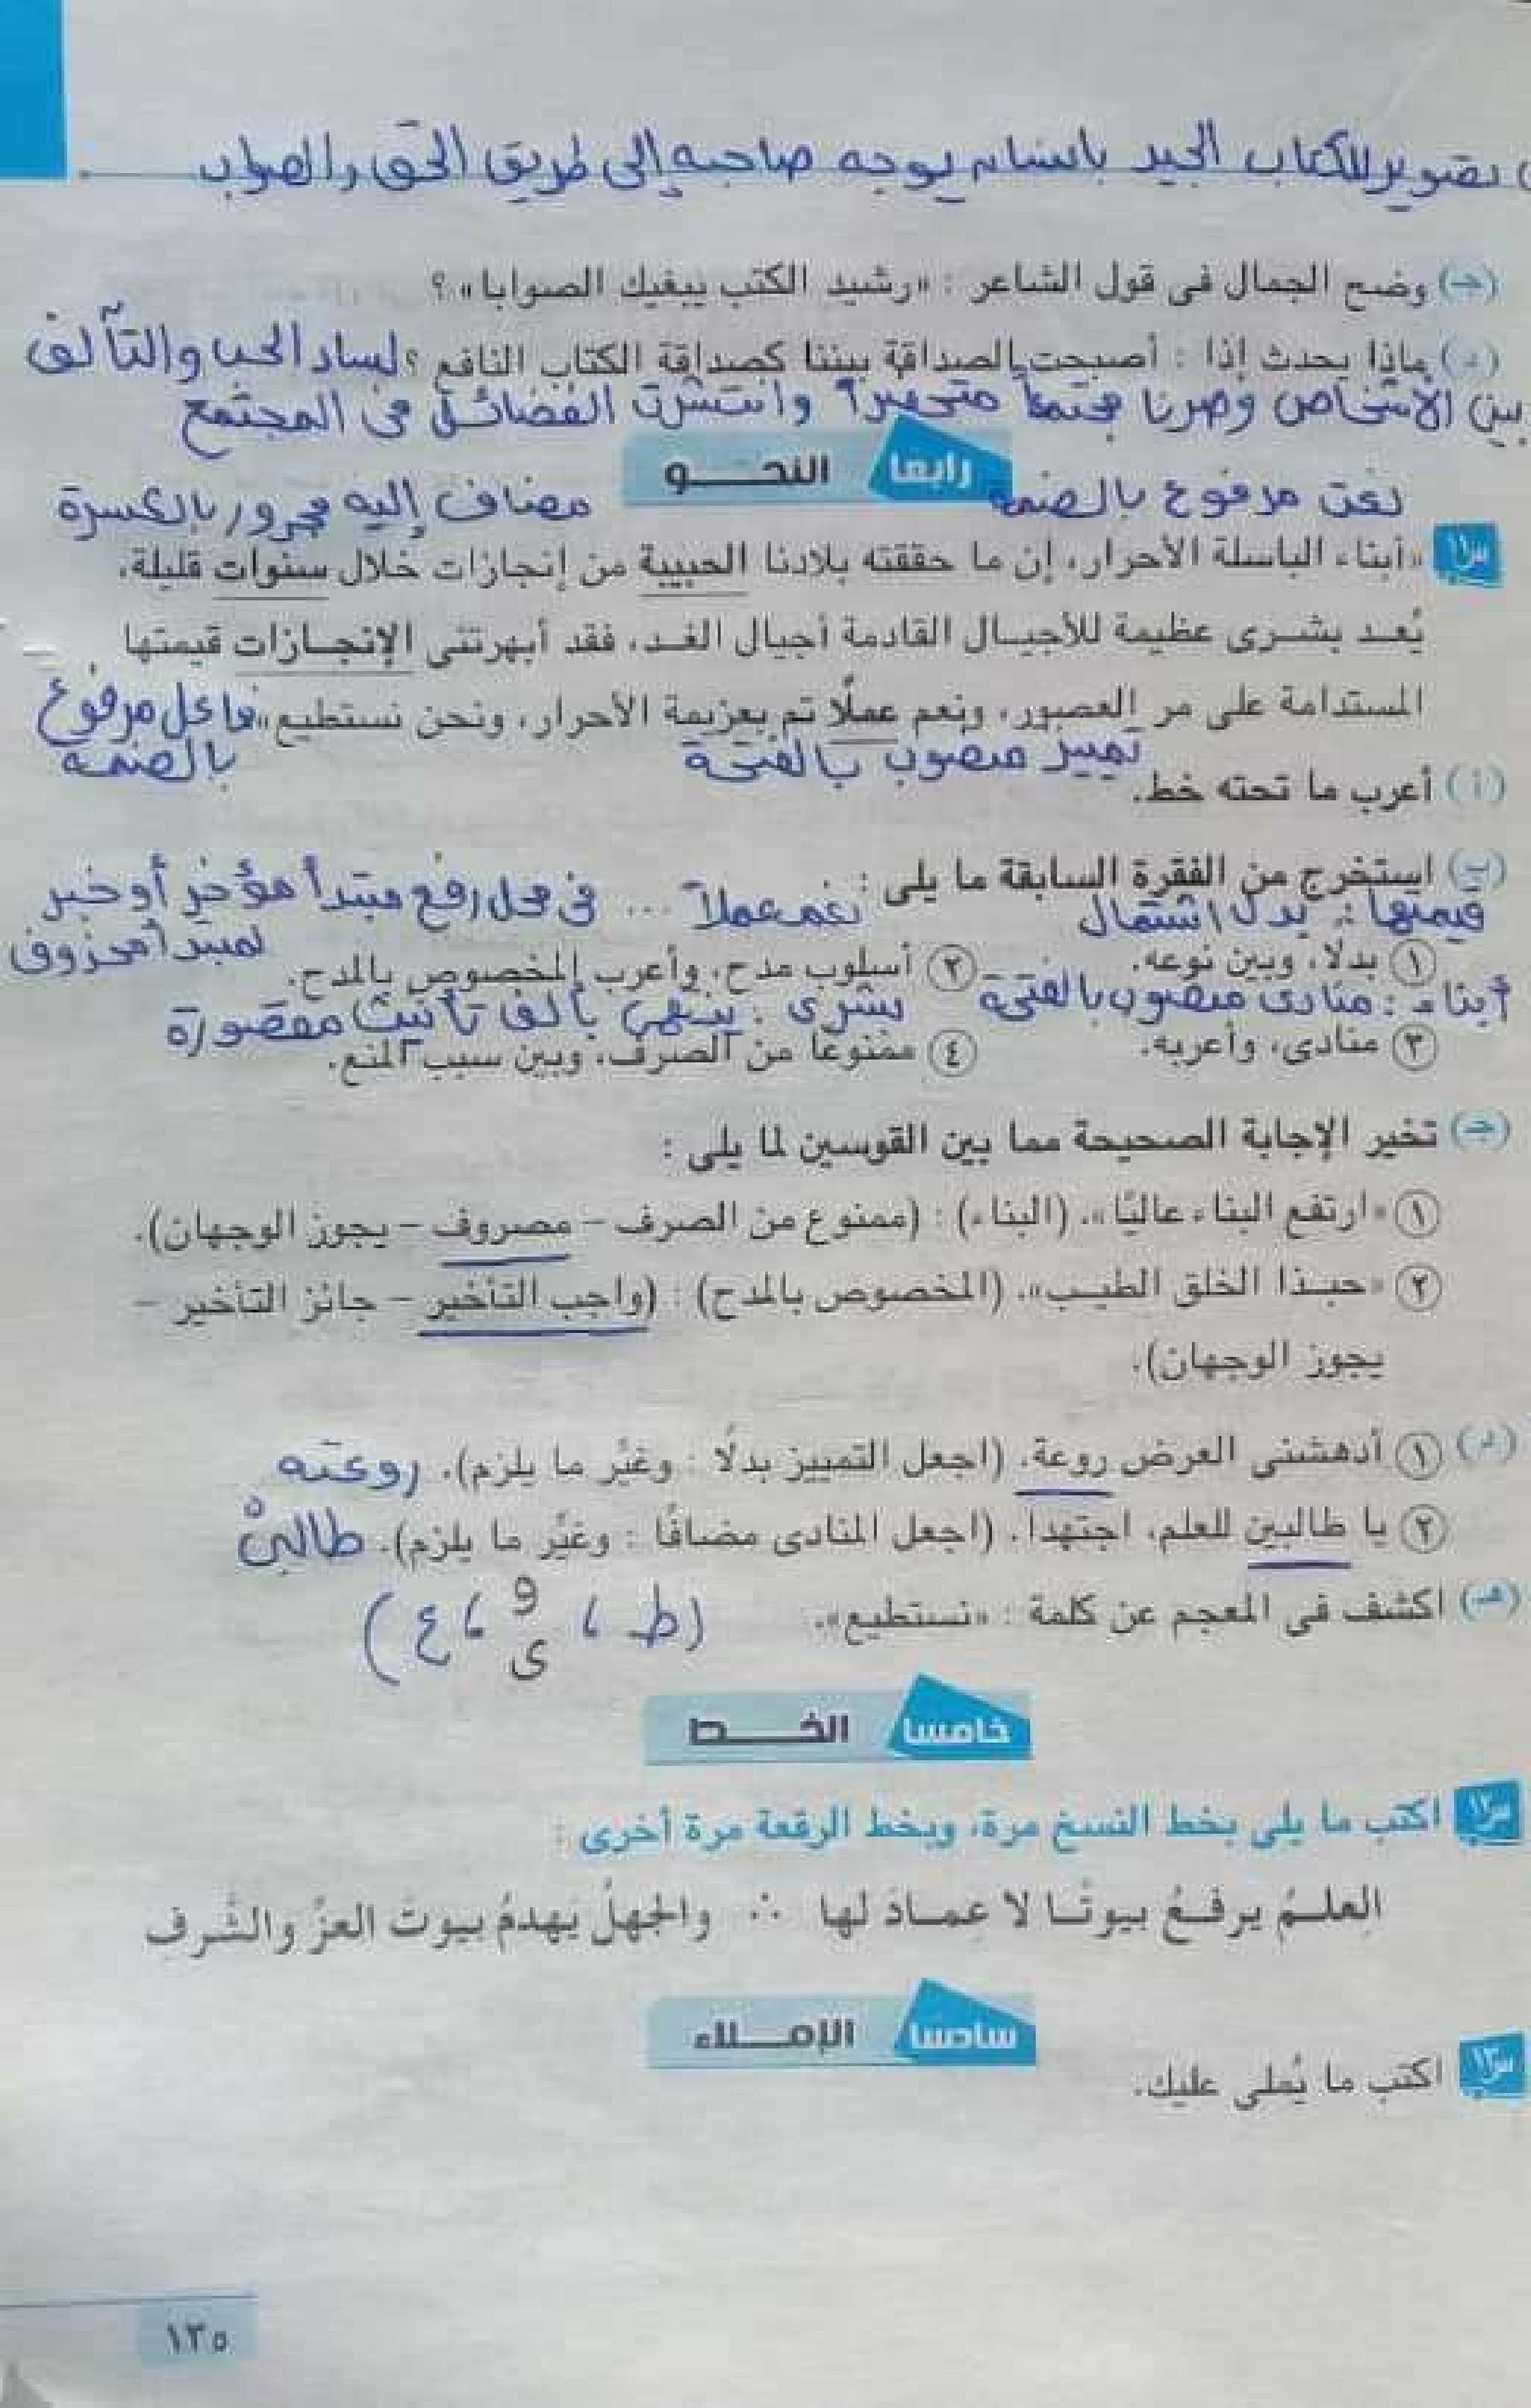 تصوير للكتاب الجيد بإنسان يوجه صاحبه إلى طريق الحق والصواب
(جـ) وضح الجمال فى قول الشاعر : «رشيد الكتب يبغيك الصوابا» ؟
(د) ماذا يحدث إذا : أصبحت الصداقة بيننا كصداقة الكتاب النافع ؟ لساد الحب والتآلف
بين الأشخاص وصرنا مجتمعاً متحضراً وانتشرت الفضائل فى المجتمع
رابعا النحـــو
نعت مرفوع بالضمه مضاف إليه مجرور بالكسرة
س١١ «أبناء الباسلة الأحرار، إن ما حققته بلادنا الحبيبة من إنجازات خلال سنوات قليلة،
يُعـد بشـرى عظيمة للأجيـال القادمة أجيال الغـد، فقد أبهرتنى الإنجـازات قيمتها
المستدامة على مر العصور، ونعم عملًا تم بعزيمة الأحرار، ونحن نستطيع» فاعل مرفوع
تمييز منصوب بالفتحة بالضمه
(أ) أعرب ما تحته خط.
(ب) استخرج من الفقرة السابقة ما يلى :
قيمتها : بدل اشتمال نعم عملاً ... فى محل رفع مبتدأ مؤخر أو خبر
لمبتدأ محذوف
١ بدلًا، وبين نوعه. ٢ أسلوب مدح، وأعرب المخصوص بالمدح.
أبناء : منادى منصوب بالفتحة بشرى : ينتهى بألف تأنيث مقصورة
٣ منادى، وأعربه. ٤ ممنوعًا من الصرف، وبين سبب المنع.
(جـ) تخير الإجابة الصحيحة مما بين القوسين لما يلى :
١ «ارتفع البناء عاليًا». (البناء) : (ممنوع من الصرف – مصروف – يجوز الوجهان).
٢ «حبـذا الخلق الطيـب». (المخصوص بالمدح) : (واجب التأخير – جائز التأخير –
يجوز الوجهان).
(د) ١ أدهشنى العرض روعة. (اجعل التمييز بدلًا : وغيِّر ما يلزم). روعته
٢ يا طالبين للعلم، اجتهدا. (اجعل المنادى مضافًا : وغيِّر ما يلزم). طالبىْ
(هـ) اكشف فى المعجم عن كلمة : «نستطيع». (ط ، و ، ع)
ى
خامسا الخـــط
س١٢ اكتب ما يلى بخط النسخ مرة، وبخط الرقعة مرة أخرى :
العلـمُ يرفـعُ بيوتًـا لا عمـادَ لها ∴ والجهلُ يَهدمُ بيوتَ العزِّ والشَّرفِ
سادسا الإمـــلاء
س١٣ اكتب ما يُملى عليك.
١٣٥